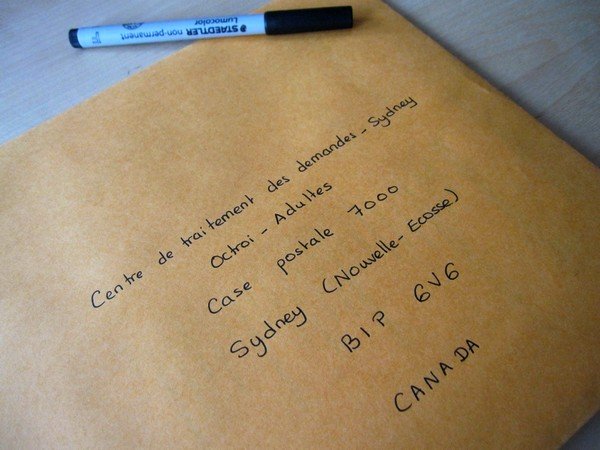 STAEDTLER non-permanent
Lumocolor
Centre de traitement des demandes - Sydney
Octroi - Adultes
Case postale 7000
Sydney (Nouvelle-Ecosse)
B1P 6V6
CANADA